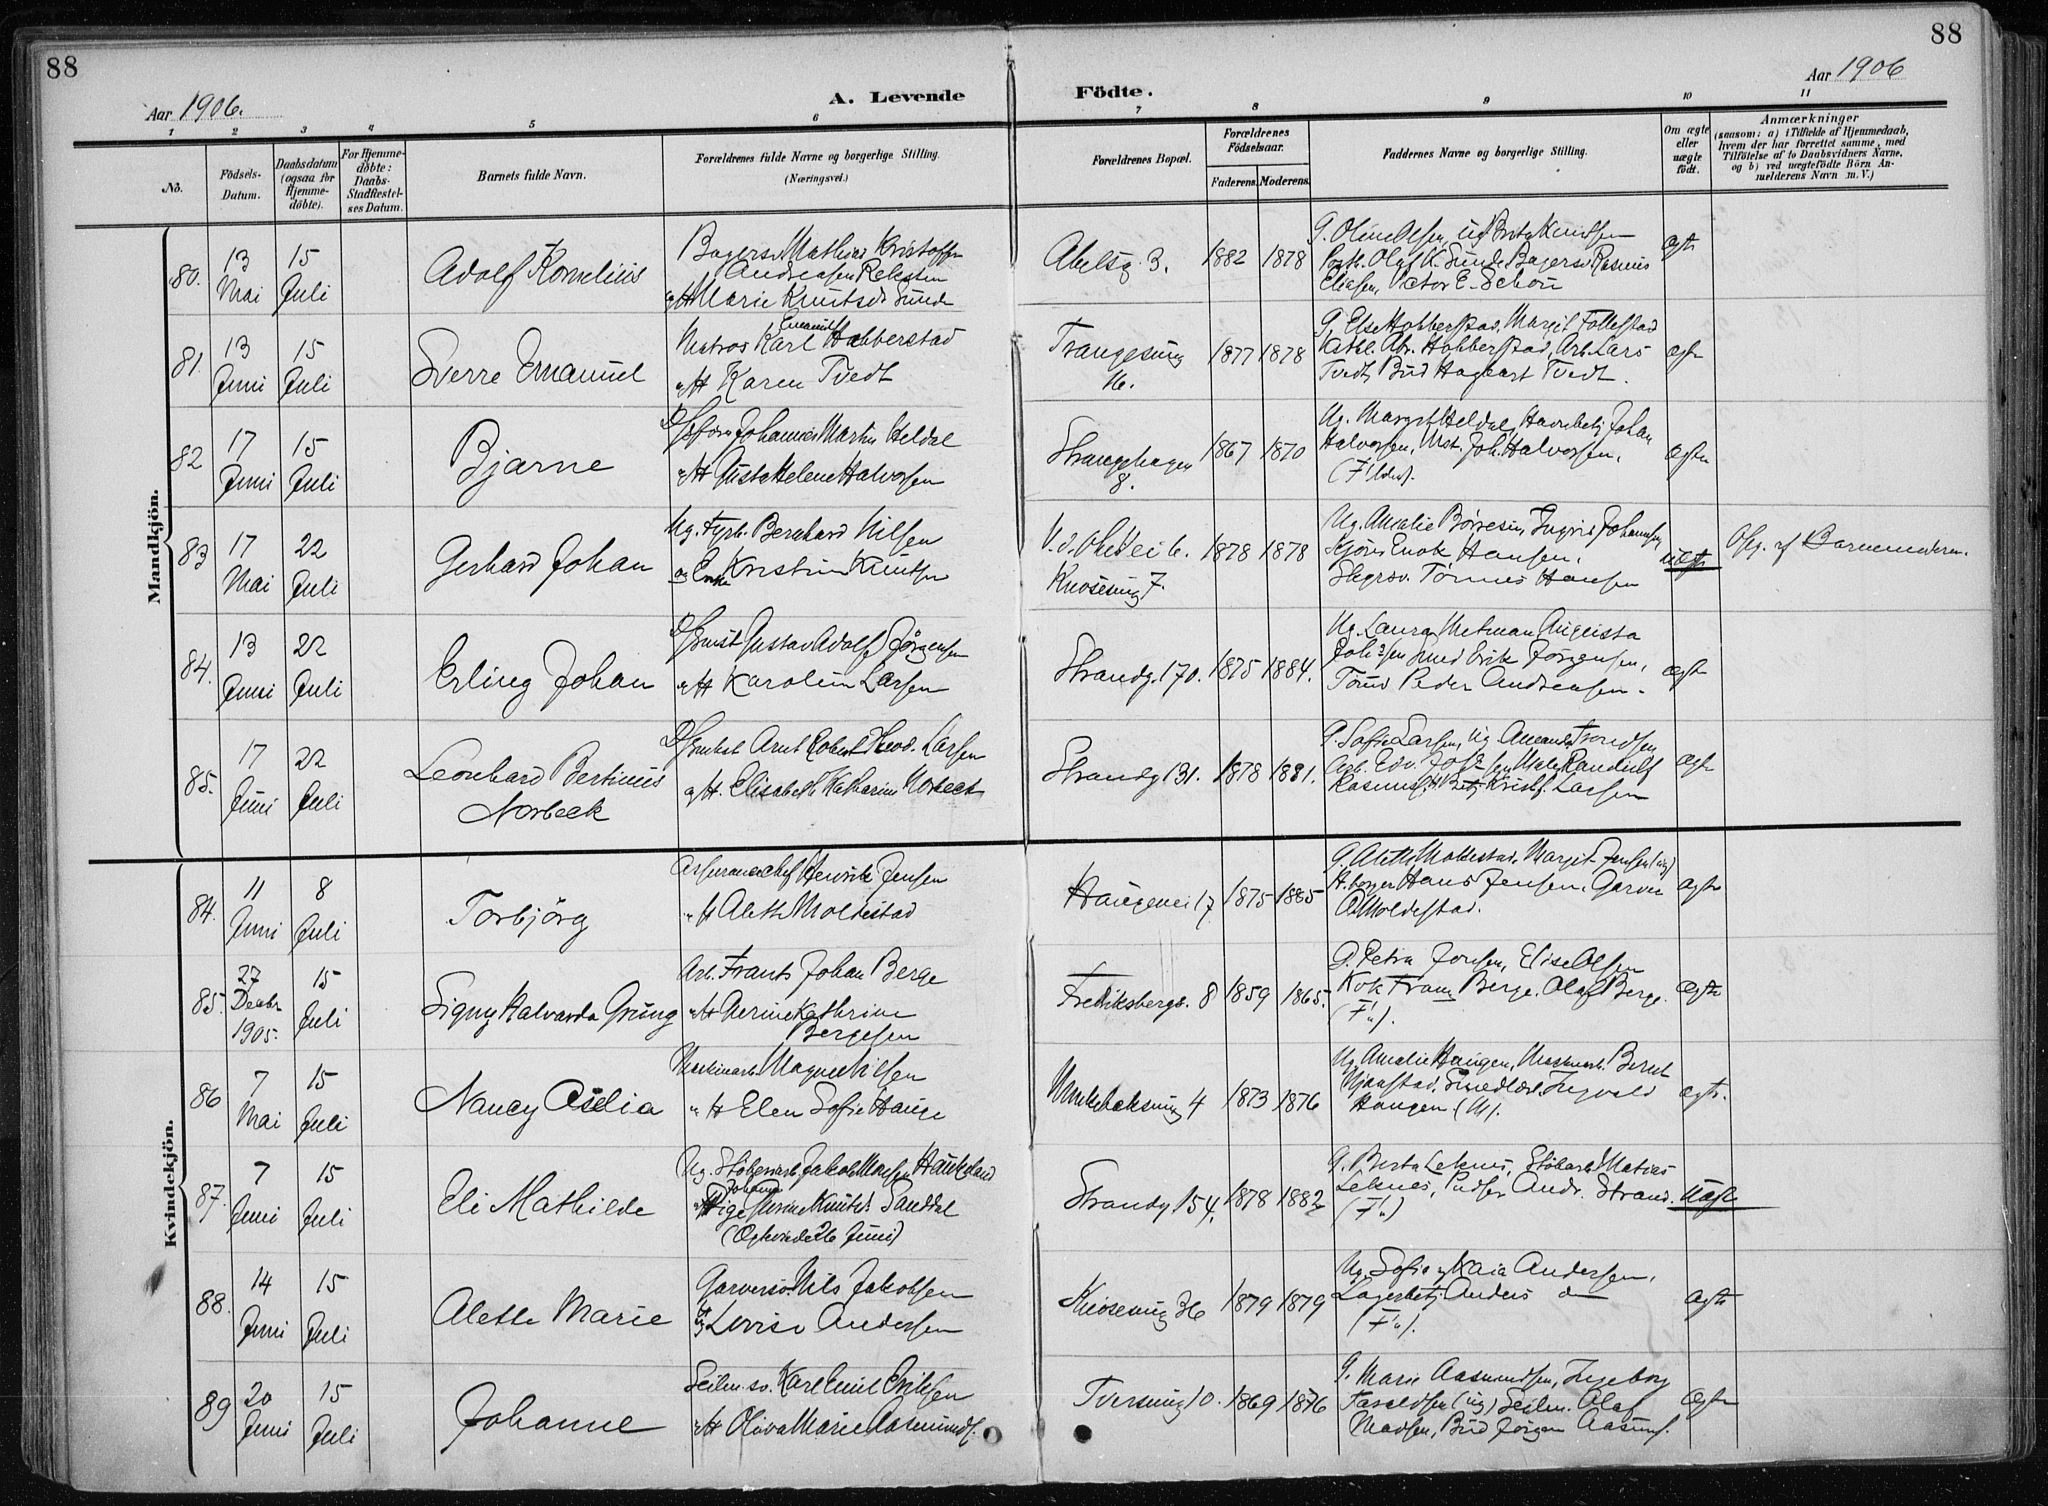 88
88
Aar 1906.
A. Levende
Födte.
Aar 1906
1 2 3 4 5 6 7 8 9 10 11
No.
Födsels-Datum.
Daabsdatum (ogsaa for Hjemme-döbte).
For Hjemme-döbte: Daabs-Stadfæstel-ses Datum.
Barnets fulde Navn.
Forældrenes fulde Navne og borgerlige Stilling.
(Næringsvei.)
Forældrenes Bopæl.
Forældrenes Födselsaar.
Faderens. Moderens.
Faddernes Navne og borgerlige Stilling.
Om ægte eller uægte födt.
Anmærkninger
(saasom: a) i Tilfælde af Hjemmedaab, hvem der har forrettet samme, med Tilföielse af to Daabsvidners Navne, og b) ved uægtefödte Börn An-melderens Navn m. V.)
Mandkjön.
80. 13 Mai 15 Juli Adolf Kornelius
Mathias Kristoffer
Andreasen Reksten
Marie Knutsdr Sunde
Abelsg. 3. 1882 1878
G. Oline Olsen, Ug Berta Knudsen
Olaf K. Sunde, Bagersv Rasmus
Eliasen, Victor E. Schou
ægte
81. 13 Juni 15 Juli Sverre Emanuel
Matros Karl Emanuel Hobberstad
og H Karen Tvedt
Trangesmug 16. 1877 1878
G. Else Hobberstad, Margit Follestad
Abr. Hobberstad, Arb. Lars
Tvedt, Bud Hagbart Tvedt.
ægte
82 17 Juni 15 Juli Bjarne
Johannes Martin Heldal
og H Gusta Helene Halvorsen
Strangehagen 8. 1867 1870
Ug. Margit Heldal, Havnebetj Johan
Halvorsen, Mat. Joh. Halvorsen,
ægte
83 17 Mai 22 Juli Gerhard Johan
Ug. Fyrb. Bernhard Nilsen
og Enke Kristine Knutsen
Knøsesmug 7. 1878 1878
Ug. Amalie Børresen, Ingrid Johannsen
Enok Hansen,
Tønnes Hansen
uægte
Opg. af Barnemoderen.
84. 13 Juni 22 Juli Erling Johan
Gustav Adolf Jörgensen
og H Karoline Larsen
Strandg. 170. 1875 1884.
Ug. Laura Metman, Augusta
Johnsen, Smed Erik Jörgensen,
Peder Andreasen.
ægte
85. 17 Juni 22 Juli Leonhard Bertinus Norbeck
Arnt Robert Theod. Larsen
og H. Elisabeth Katharine Norbeck
Strandg 131. 1878 1881.
G. Sofie Larsen, Ug Amanda Tronsen
Arb. Edv. Maler Randulf
Rasmus. Kristf. Larsen
ægte
Kvindekjön.
84. 11 Juni 8 Juli Torbjörg
Henrik Jensen
og H Aleth Moldestad
Haugevei 17 1875 1885
G. Aleth Moldestad, Margit Jensen (ug)
H. borger Hans Jensen, Garver
O Moldestad.
ægte
85. 27 Decbr 1905. 15 Juli Signy Halvarda Gröng
Arb. Frants Johan Berge
og H Nerine Kathrine
Bergesen
Fredriksbergg. 8 1859 1865.
G. Petra Jensen, Elise Olsen
Kok Frans Berge, Olaf Berge.
ægte
86 7 Mai 15 Juli Nancy Oselia
Maskinarb. Magnus Nilsen
og H Elen Sofie Hauge
4 1873 1876
Ug Amalie Haugen, Maskinarb. Bernt
Smedlærl Ingvald
Haugen (U).
ægte.
87. 7 Juni 15 Juli Eli Mathilde
Ug. Støberiarb. Jakob Monsen Haukeland
og Pige Johanne Gurine Knutsd Sanddal
(Ægteviede 26 Juni)
Strandg 154. 1878 1882
G. Berta Leknes, Støberiarb Matias
Leknes, Pudser Andr. Strand.
uægte
88. 14 Juni 15 Juli Alette Marie
Garversv. Nils Jakobsen
og H Lovise Andersen
Knosesmug 36 1879 1879
Ug. Sofie og Kaia Andersen,
Lagerbetj Anders do
ægte
89 20 Juni 15 Juli Johanne
Seilm. sv. Karl Emil Eriksen
og H Oliva Marie Aasmunds.
Tversmug 10. 1869 1876
G. Marie Aasmundsen, Ingeborg
Taraldsen (ug) Seilm. Olaf
Madsen, Bud Jörgen Aasmunds.
ægte